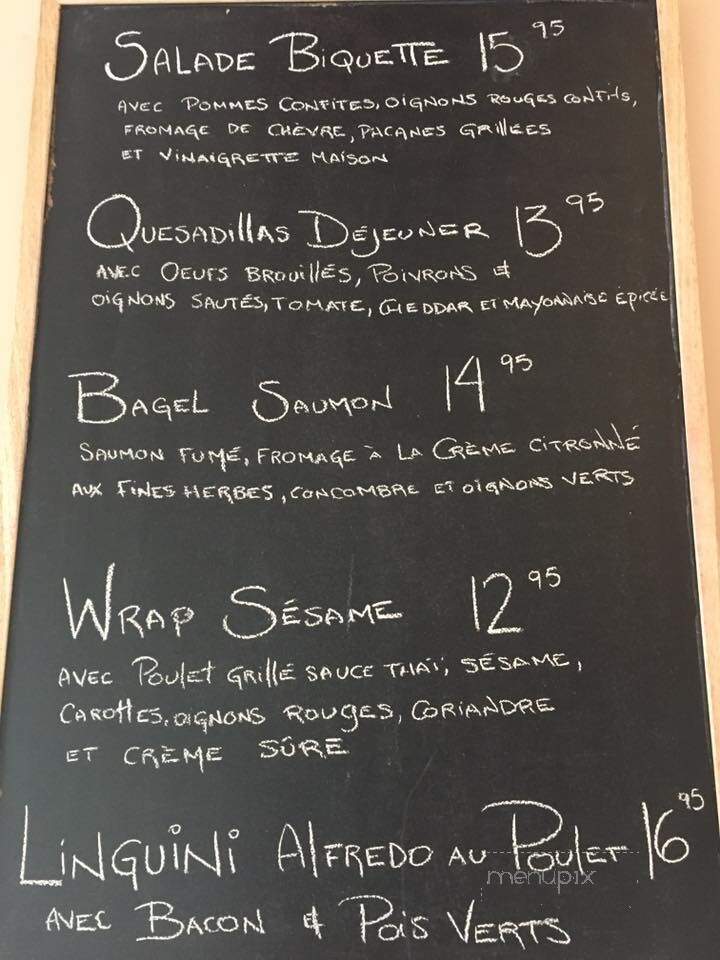 SALADE BIQUETTE 15 95
AVEC POMMES CONFITES, OIGNONS ROUGES CONFITS,
FROMAGE DE CHÈVRE, PACANES GRILLÉES
ET VINAIGRETTE MAISON
QUESADILLAS DÉJEUNER 13 95
AVEC OEUFS BROUILLÉS, POIVRONS &
OIGNONS SAUTÉS, TOMATE, CHEDDAR ET MAYONNAISE ÉPICÉE
BAGEL SAUMON 14 95
SAUMON FUMÉ, FROMAGE À LA CRÈME CITRONNÉ
AUX FINES HERBES, CONCOMBRE ET OIGNONS VERTS
WRAP SÉSAME 12 95
AVEC POULET GRILLÉ SAUCE THAÏ, SÉSAME,
CAROTTES, OIGNONS ROUGES, CORIANDRE
ET CRÈME SÛRE
LINGUINI ALFREDO AU POULET 16 95
menupix
AVEC BACON & POIS VERTS